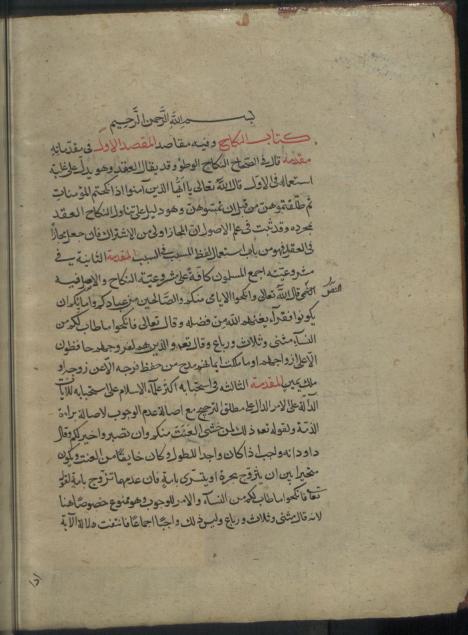 بسم الله الرحمن الرحيم
كتاب النكاح وفيه مقاصد المقصد الاول في مقدماته
مقدمة قال في الصحاح النكاح الوطؤ وقد يقال العقد وهو يدل على غلبة
استعماله في الاول قال الله تعالى يا ايها الذين آمنوا اذا نكحتم المؤمنات
ثم طلقتموهن من قبل ان تمسوهن وهو دليل على تناول النكاح العقد
بمجرده وقد ثبت في علم الاصول ان المجاز اولى من الاشتراك فان جعل مجازا
في العقد فهو من باب استعمال لفظ المسبب في السبب المقدمة الثانية في
مشروعيته اجمع المسلمون كافة على مشروعية النكاح والاصل فيه
النص قال الله تعالى وانكحوا الايامى منكم والصالحين من عبادكم وامائكم ان
يكونوا فقرآء يغنهم الله من فضله وقال تعالى فانكحوا ما طاب لكم من
النسآء مثنى وثلاث ورباع وقال تعه والذين هم لفروجهم حافظون
الا على ازواجهم او ما ملكت ايمانهم مدح من حفظ فرجه الا عن زوجة او
ملك يمين المقدمة الثالثة في استحبابه اكثر علمآء الاسلام على استحبابه للايات
الدالة على الامر الدال على مطلق الترجيح مع اصالة عدم الوجوب لاصالة براءة
الذمة ولقوله تعه ذلك لمن خشى العنت منكم وان تصبروا خير لكم وقال
داود انه واجب اذا كان واجدا للطول وكان خايفا من العنت ويكون
مخيرا بين ان يتزوج بحرة او يتسرى بامة فان عدمها تزوج بامة لقوله
تعا فانكحوا ما طاب لكم من النسآء والامر للوجوب وهو ممنوع خصوصا هنا
لانه قال مثنى وثلاث ورباع وليس ذلك واجبا اجماعا فانتفت دلالة الآية
النص